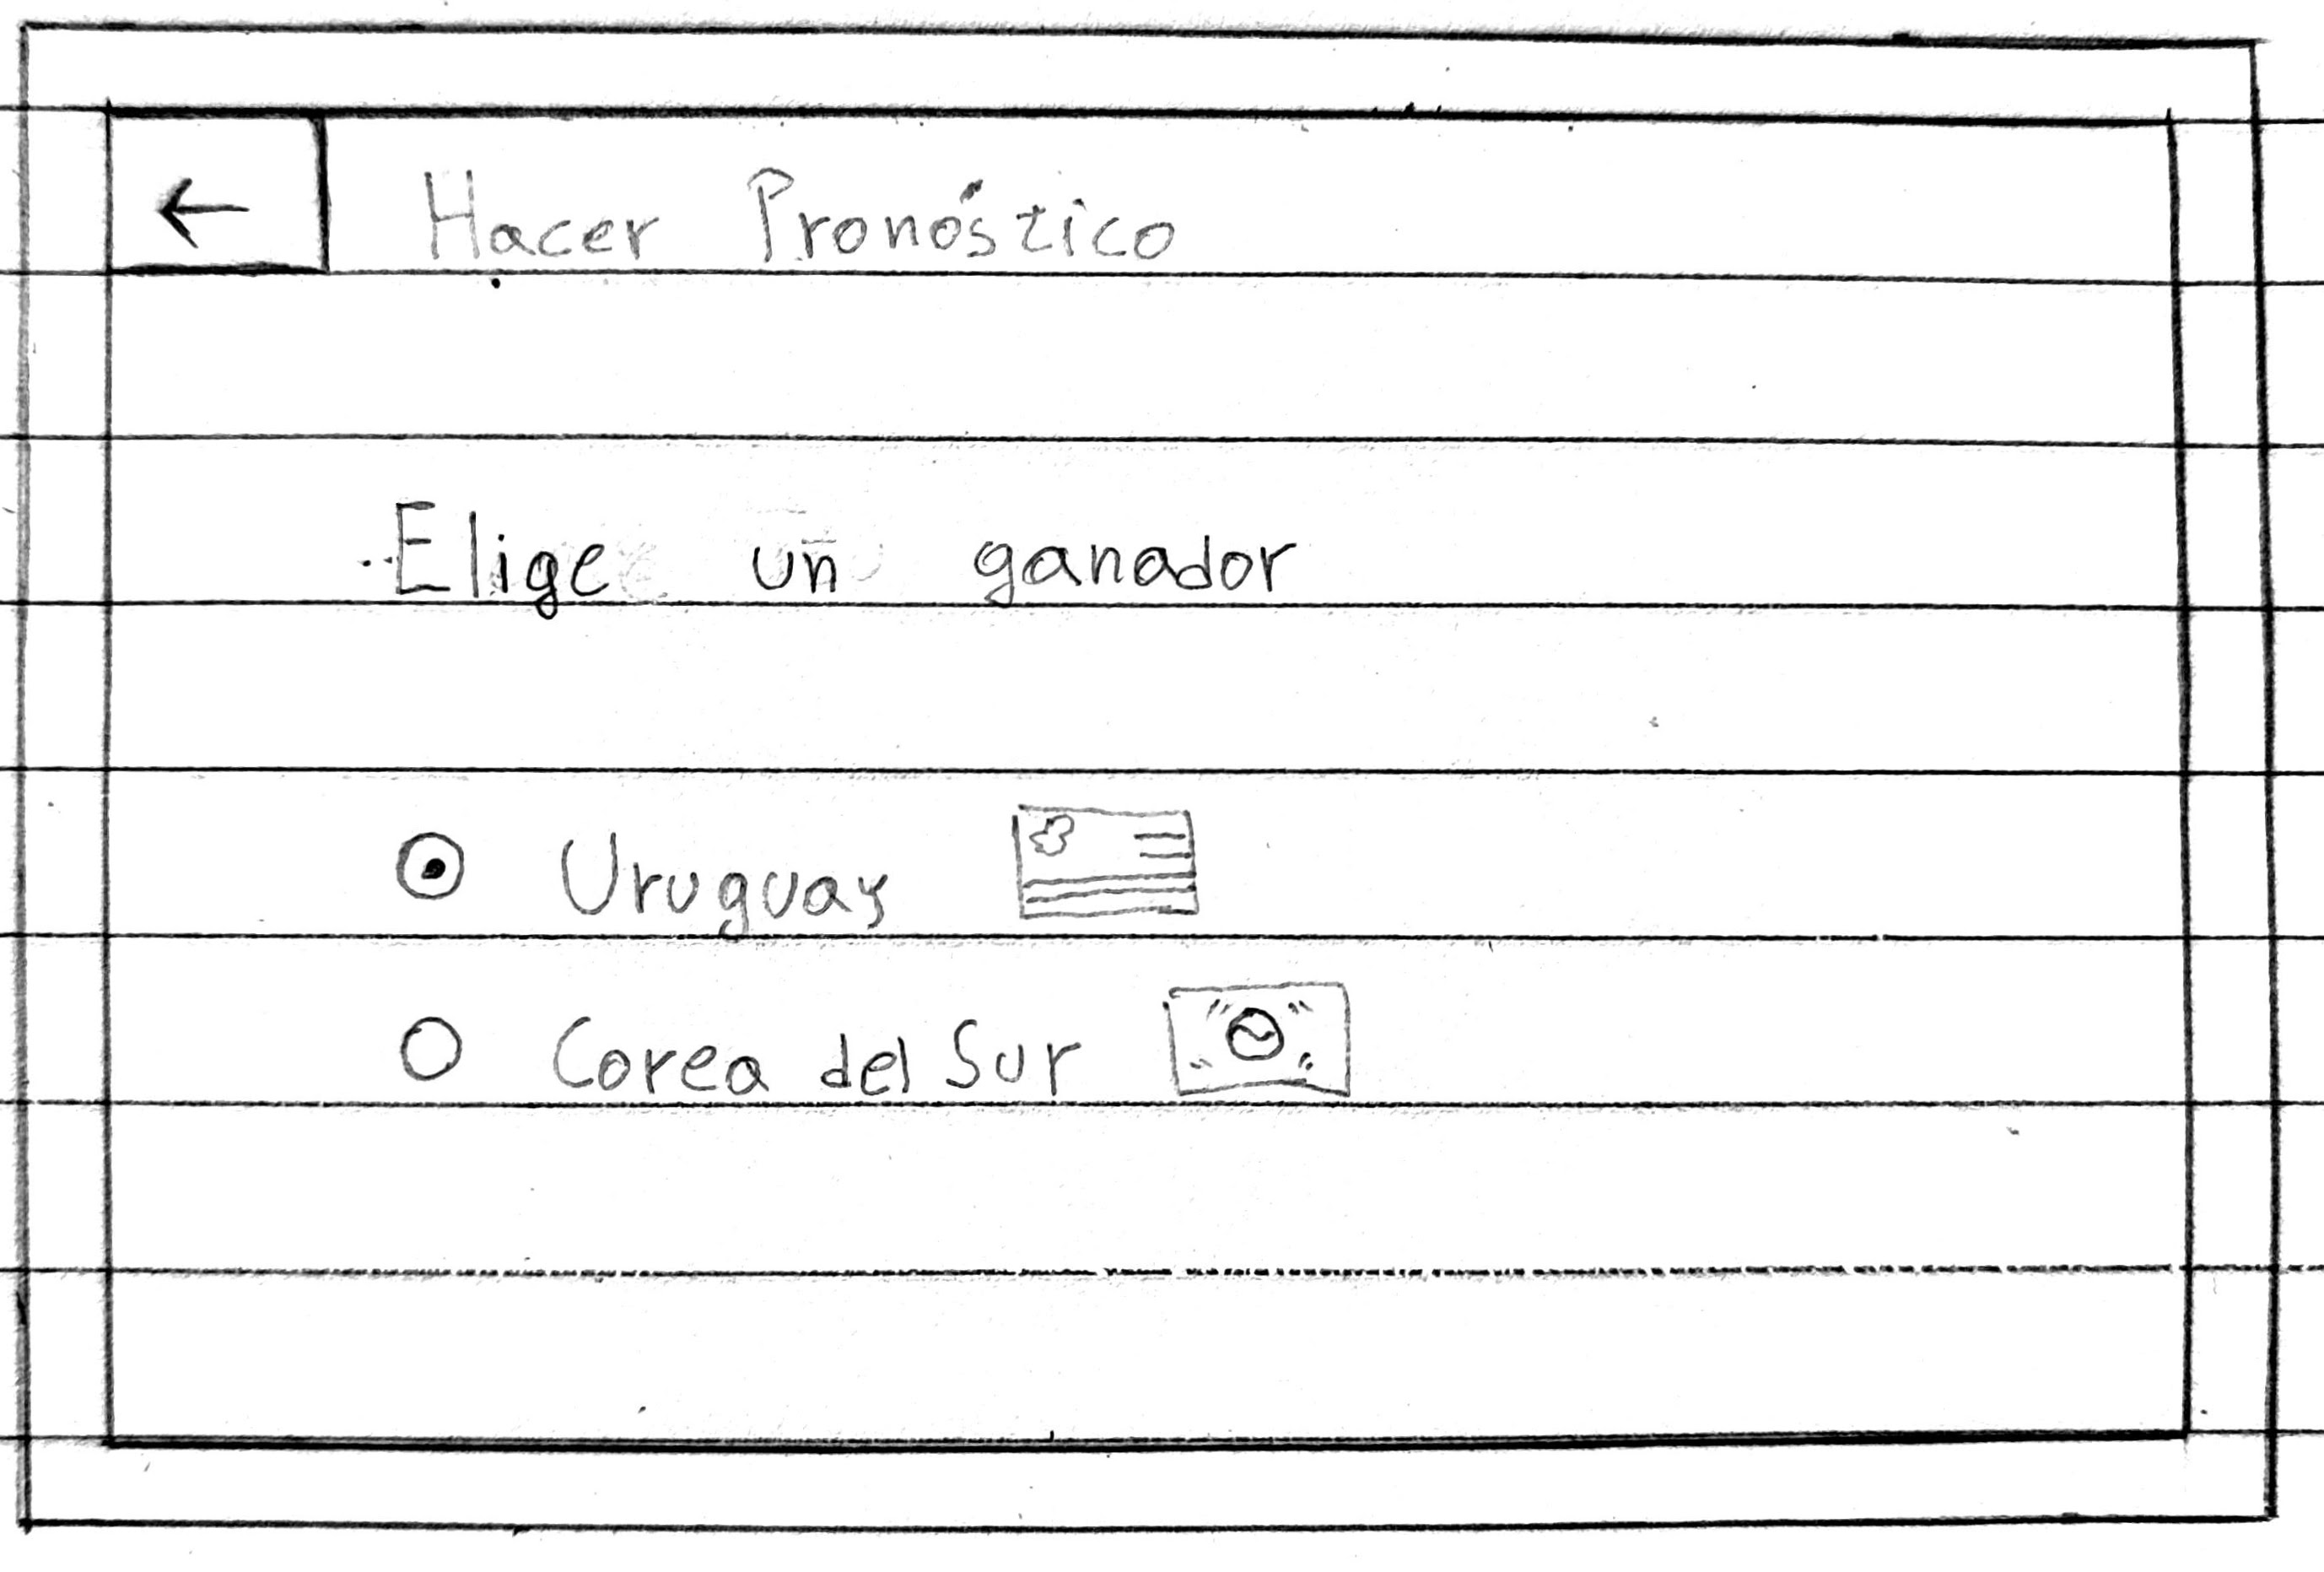 ← Hacer Pronóstico
Elige un ganador
Uruguay
Corea del Sur